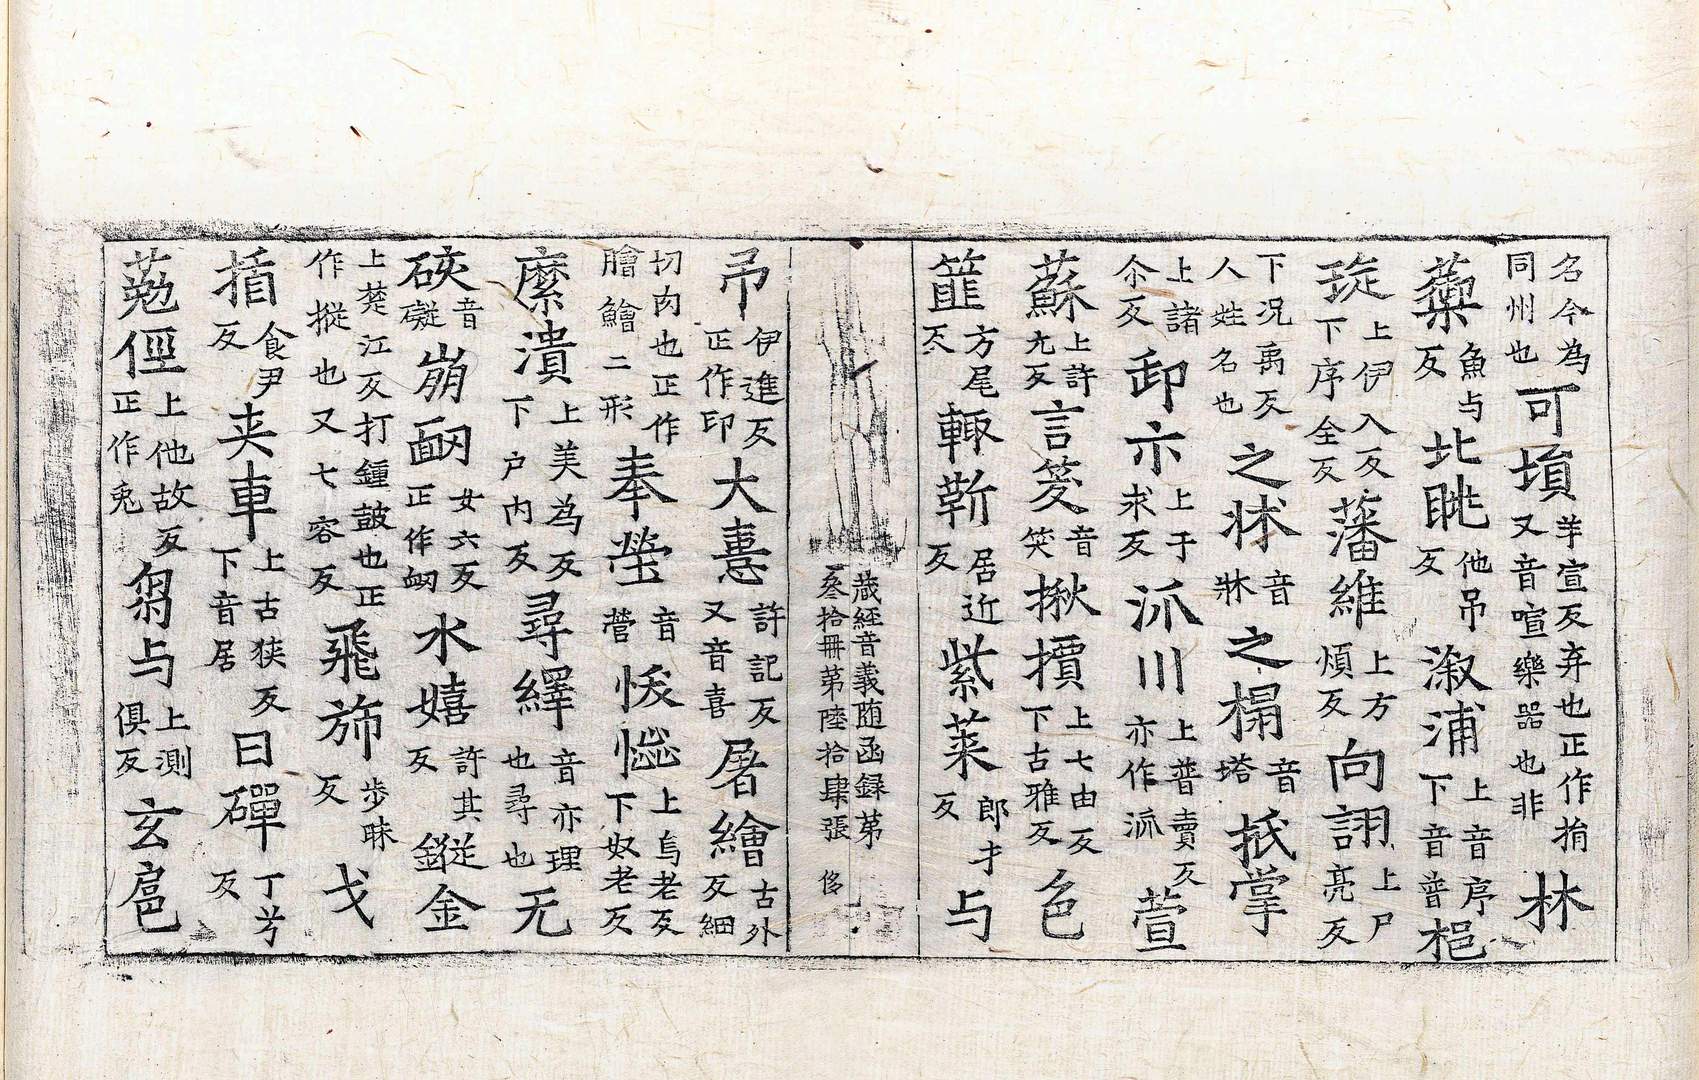 名今為同州也可塤羊宣反弃也正作捐又音喧樂器也非林
蘽魚与反北眺他吊反溆浦上音序下音普棿
琁上伊入反下序全反藩維上方煩反向詡上尸亮反
下況禹反人姓名也之牀音牀之榻音塔抵掌
上諸尒反卸亦上于求反派川上普賣反亦作派萱
蘇上許尤反言笺音笑揪檟上七由反下古雅反色
篚方尾反輙靳居近反紫萊郎才反与
藏經音義随函録第
叁拾冊第陸拾肆張 侈
帋伊進反正作印大憙許記反又音喜屠繪古外反細
切肉也正作膾鱠二形奉瑩音營惔惱上烏老反下奴老反
縻潰上美為反下户内反尋繹音亦理也尋也无
硋音礙崩衂女六反正作衂水嬉許其反鏦金
上楚江反打鍾皷也正作摐也又七容反飛斾步昧反戈
揗食尹反夹車上古狹反下音居曰磾丁兮反
菟俓上他故反正作兎芻与上測俱反玄扈